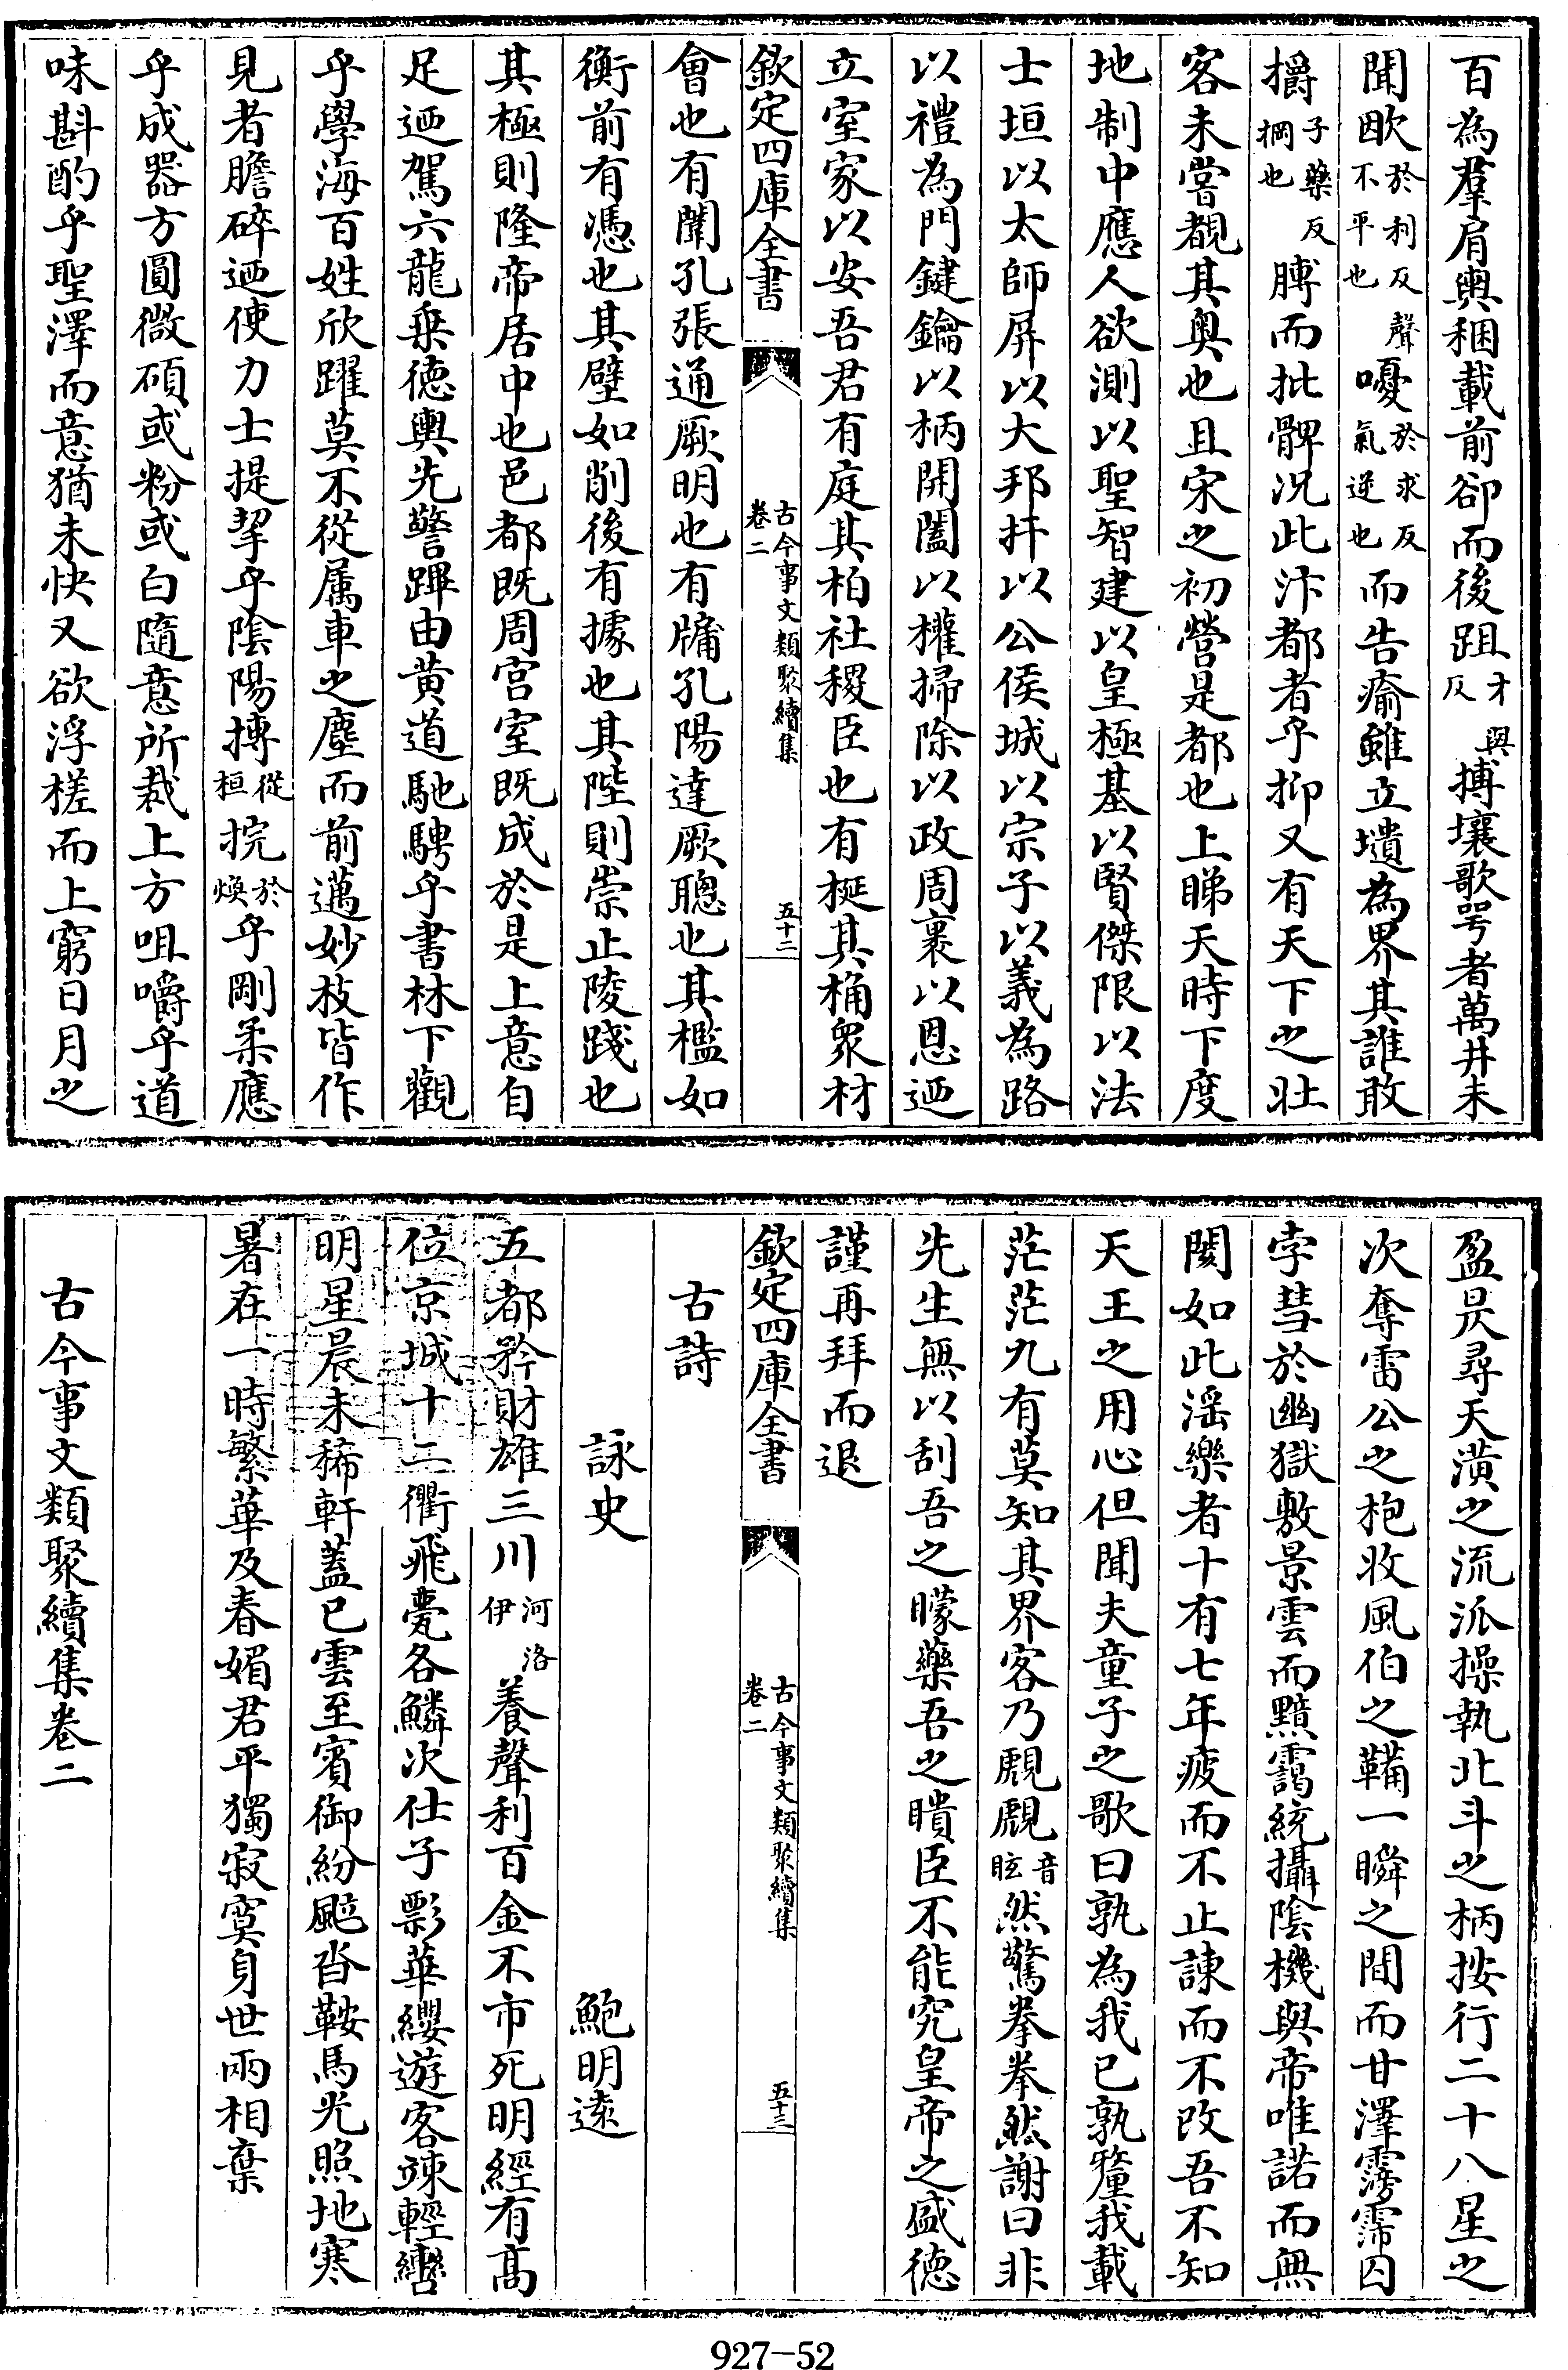 百為羣肩輿稛載前卻而後跙才與反搏壤歌咢者萬井未
聞欭於利反聲不平也嚘於求反氣逆也而告瘉雖立壝為界其誰敢
擶子藥反掆也膊而批髀况此汴都者乎抑又有天下之壯
客未嘗覩其奥也且宋之初營是都也上睇天時下度
地制中應人欲測以聖智建以皇極基以賢傑限以法
士垣以太師屏以大邦扞以公侯城以宗子以義為路
以禮為門鍵鑰以柄開闔以權掃除以政周裹以恩迺
立室家以安吾君有庭其柏社稷臣也有梴其桷衆材
欽定四庫全書 古今事文類聚續集卷二 五十二
會也有闈孔張通厥明也有牖孔陽達厥聰也其檻如
衡前有憑也其壁如削後有據也其陛則崇止陵踐也
其極則隆帝居中也邑都既周宫室既成於是上意自
足迺駕六龍乗徳輿先警蹕由黄道馳騁乎書林下觀
乎學海百姓欣躍莫不從属車之塵而前邁妙枝皆作
見者膽碎迺使力士提挈乎陰陽摶從桓捖於煥乎剛柔應
乎成器方圓微碩或粉或白隨意所裁上方咀嚼乎道
味斟酌乎聖澤而意猶未快又欲浮槎而上窮日月之
盈昃尋天潢之流派操執北斗之柄按行二十八星之
次奪雷公之枹收風伯之鞴一瞬之間而甘澤霶霈囚
孛彗於幽獄敷景雲而黮靄統攝陰機與帝唯諾而無
閡如此滛樂者十有七年疲而不止諫而不改吾不知
天王之用心但聞夫童子之歌曰孰為我已孰釐我載
茫茫九有莫知其界客乃覤覤音眩然驚拳拳然謝曰非
先生無以刮吾之矇藥吾之瞶臣不能究皇帝之盛德
謹再拜而退
欽定四庫全書 古今事文類聚續集卷二 五十三
古詩
詠史 鮑明逺
五都矜財雄三川河洛伊養聲利百金不市死明經有髙
位京城十二衢飛甍各鱗次仕子影華纓遊客竦輕轡
明星晨未稀軒蓋已雲至賓御紛颯沓鞍馬光照地寒
暑在一時繁華及春媚君平獨寂寞身世兩相棄
古今事文類聚續集卷二
927-52